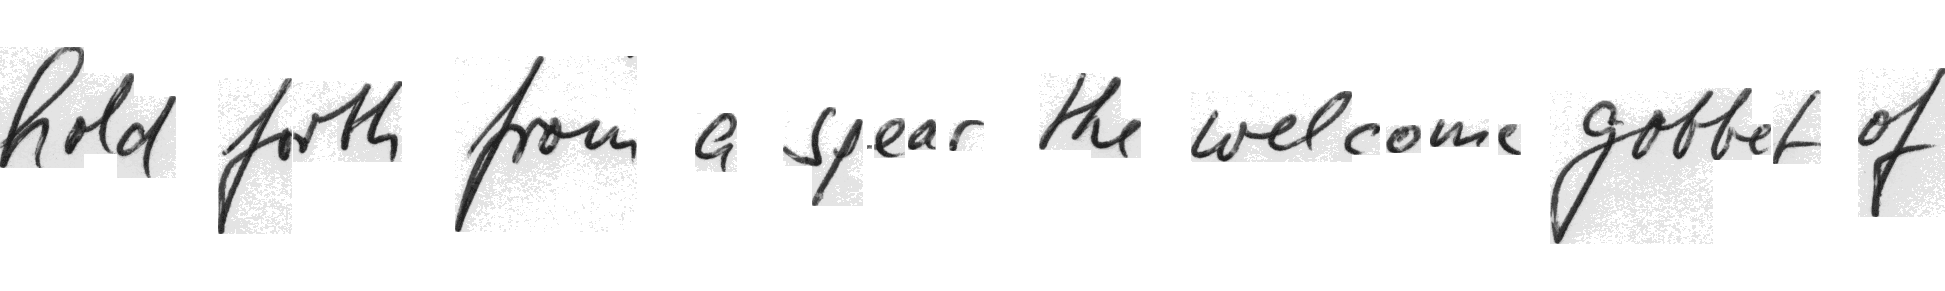 hold forth from a spear the welcome gobbet of